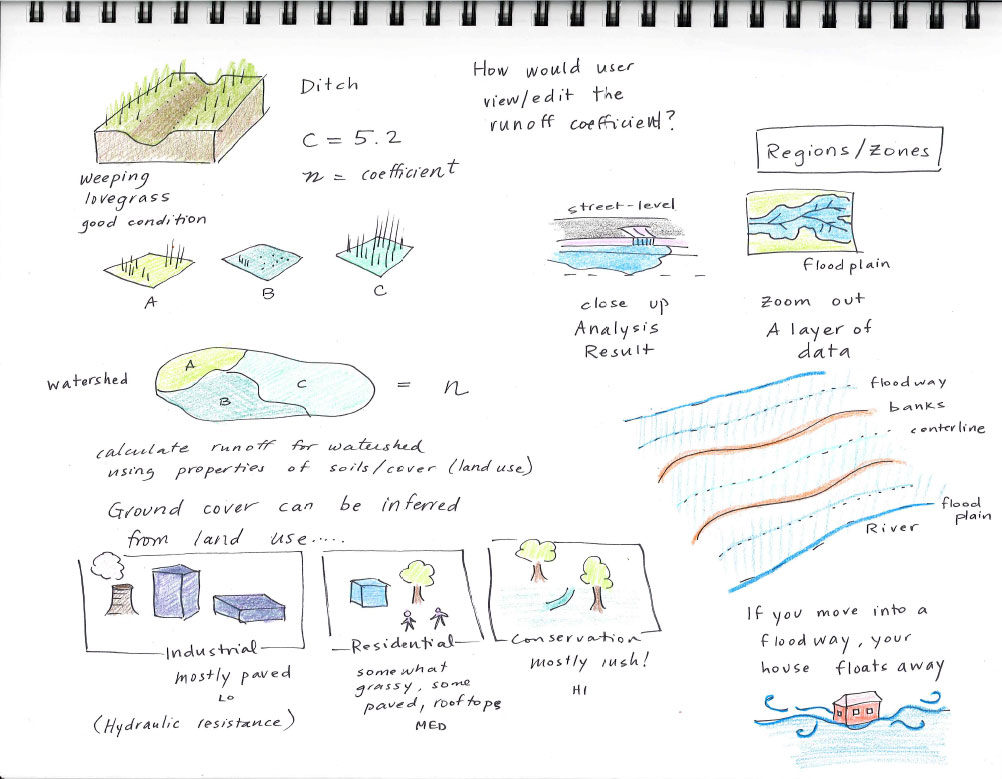 Ditch
C = 5.2
n = coefficient
weeping
lovegrass
good condition
A
B
C
How would user
view/edit the
runoff coefficient?
Regions/Zones
street-level
close up
Analysis
Result
floodplain
Zoom out
A layer of
data
watershed
A
B
C
= n
calculate runoff for watershed
using properties of soils/cover (land use)
Ground cover can be inferred
from land use.....
Industrial
mostly paved
LO
(Hydraulic resistance)
Residential
somewhat
grassy, some
paved, rooftops
MED
Conservation
mostly lush!
HI
floodway
banks
centerline
flood
plain
River
If you move into a
floodway, your
house floats away